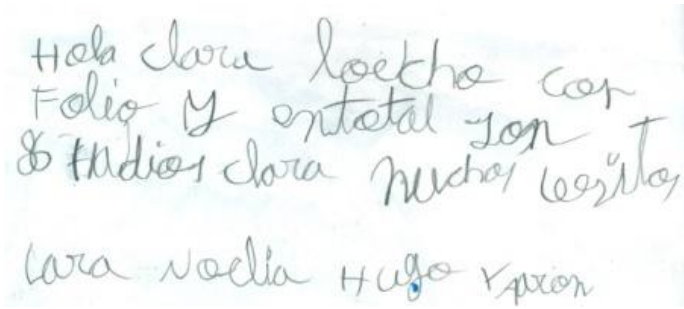 Hola clara loecho con
Folio y entotal son
8 indios clara muchos besitos
Lara Noelia Hugo Y